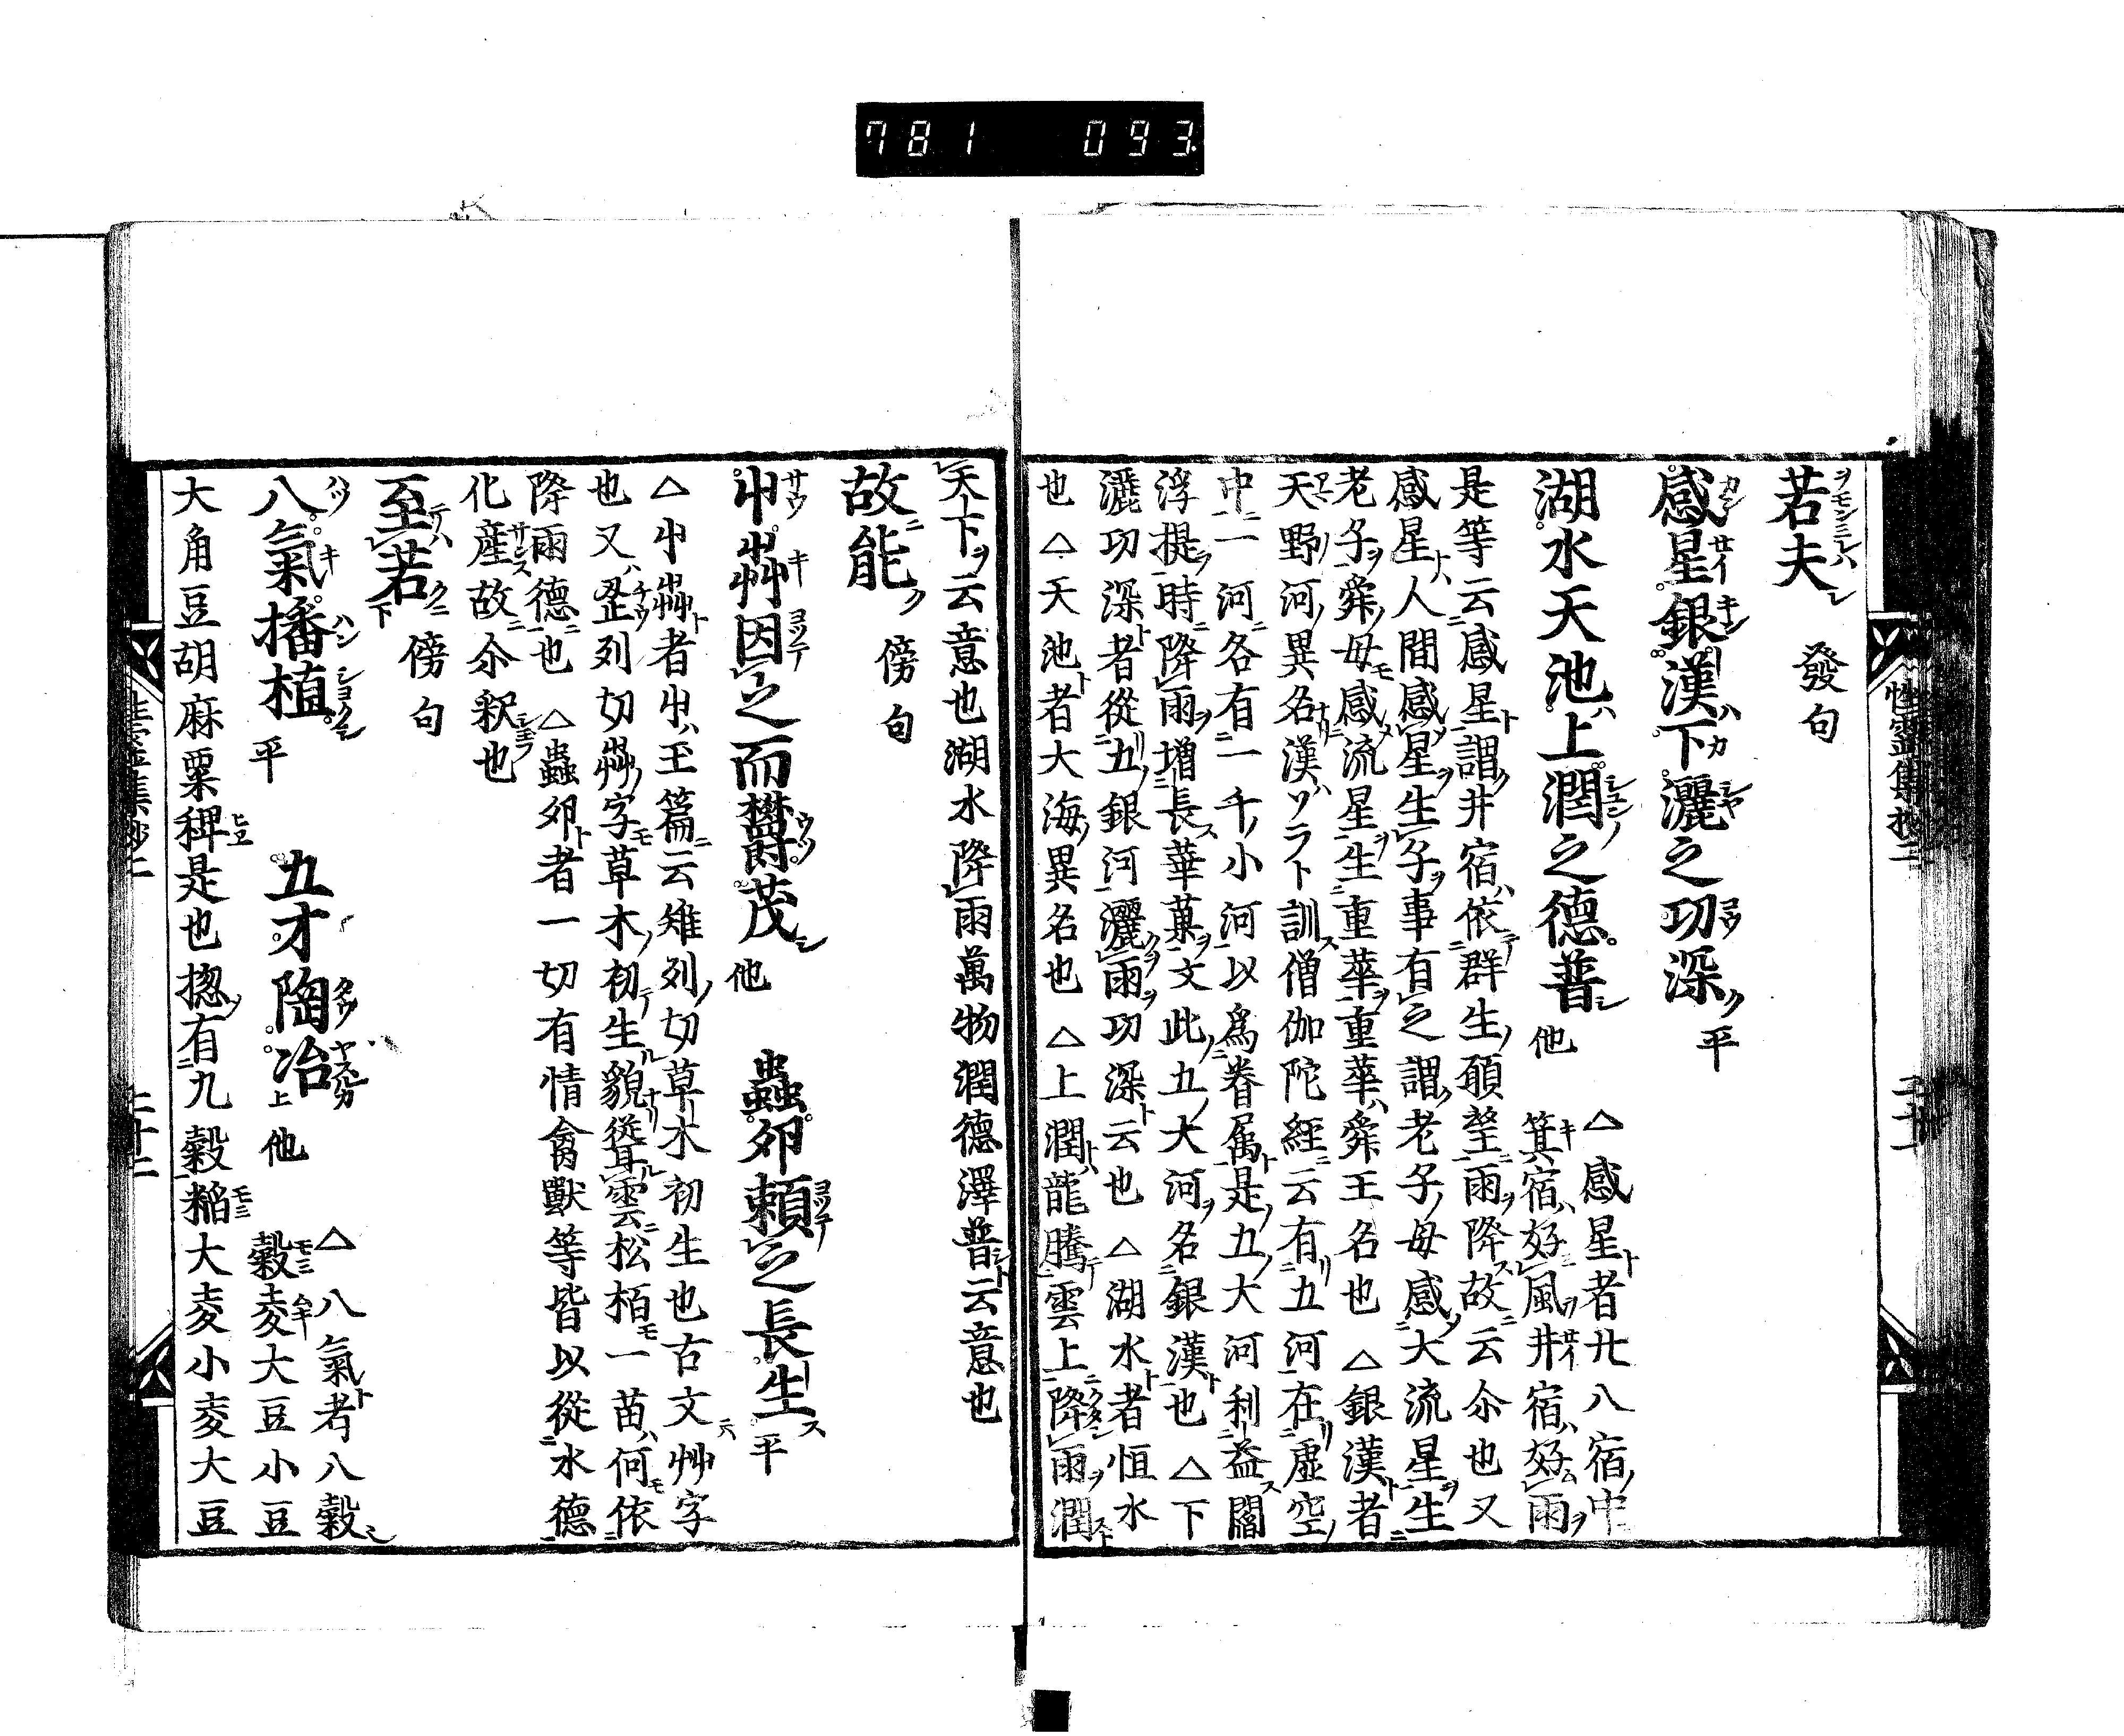 781 093
若夫 發句
感星銀漢下灑之功深 平
湖水天池上潤之德普 他
△感星者廿八宿中
箕宿好風井宿好雨
是等云感星謂井宿依群生願望雨降故云尒也又
感星人間感星生子事有之謂老子母感大流星生
老子舜母感流星生重華重華舜王名也 △銀漢者
天野河異名漢ソラト訓僧伽陀經云有五河在虛空
中一河各有一千小河以爲眷属是五大河利益閻
浮提時降雨增長華菓文此五大河名銀漢也 △下
灑功深者從五銀河灑雨功深云也 △湖水者恒水
也 △天池者大海異名也 △上潤龍騰雲上降雨潤
天下云意也湖水降雨萬物潤德澤普云意也
故能 傍句
屮茻因之而欝茂 他
蟲夘頼之長生 平
△屮茻者屮玉篇云 列切草木初生也古文艸字
也又 列切 字草木初生貌 雲松栢一苗何依
降雨德也 △蟲夘者一切有情禽獸等皆以從水德
化產故尒釈也
至若 傍句
八氣播植 平
五才陶冶 他
△八氣者八穀
穀麦大豆小豆
大角豆胡麻粟稗是也揔有九穀 大麦小麦大豆
性靈集抄二
二十二